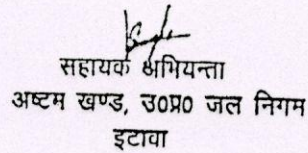 सहायक अभियन्ता
अष्टम खण्ड, उ०प्र० जल निगम
इटावा